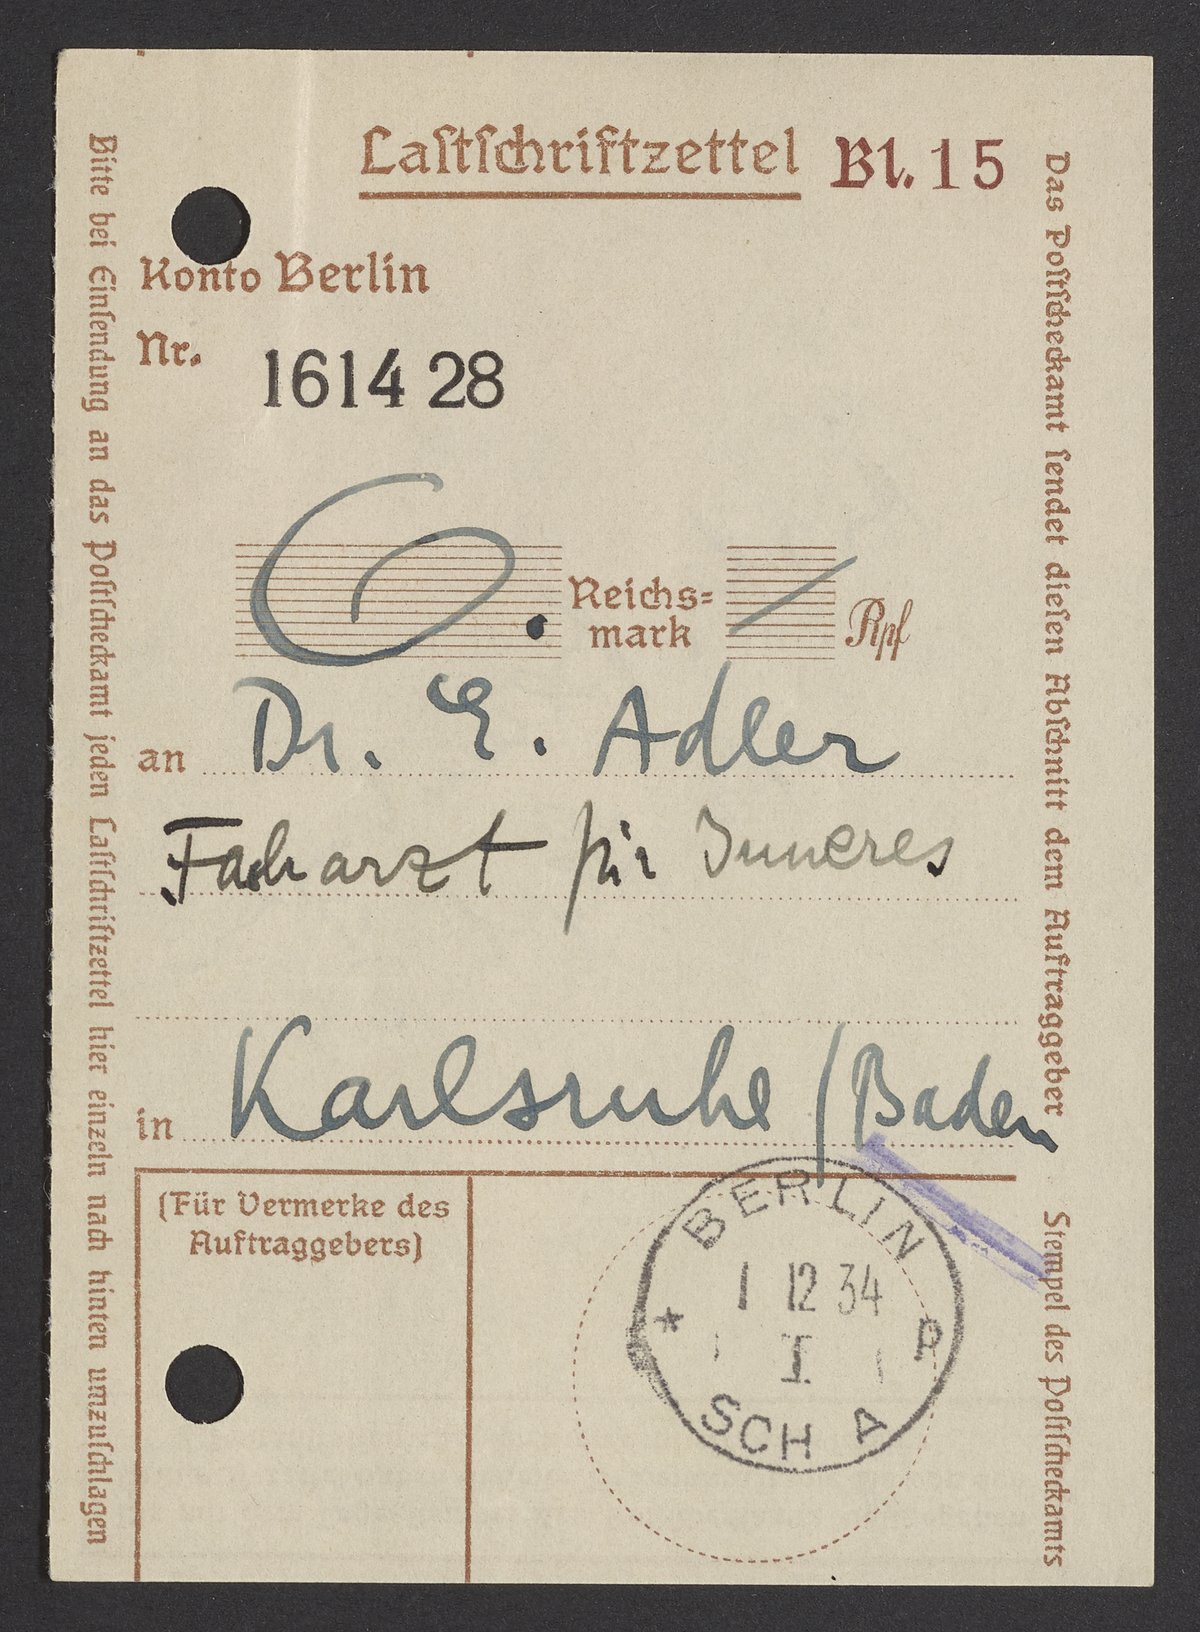 Laſtſchriftzettel Bl. 15
Konto Berlin
Nr. 1614 28
Reichs=
mark
Rpf
an Dr. E. Adler
Facharzt für Inneres
in Karlsruhe / Baden
(Für Vermerke des
Auftraggebers)
BERLIN
1 12 34
* I P
SCH A
Bitte bei Einſendung an das Poſtſcheckamt jeden Laſtſchriftzettel hier einzeln nach hinten umzuſchlagen
Das Poſtſcheckamt ſendet dieſen Abſchnitt dem Auftraggeber
Stempel des Poſtſcheckamts